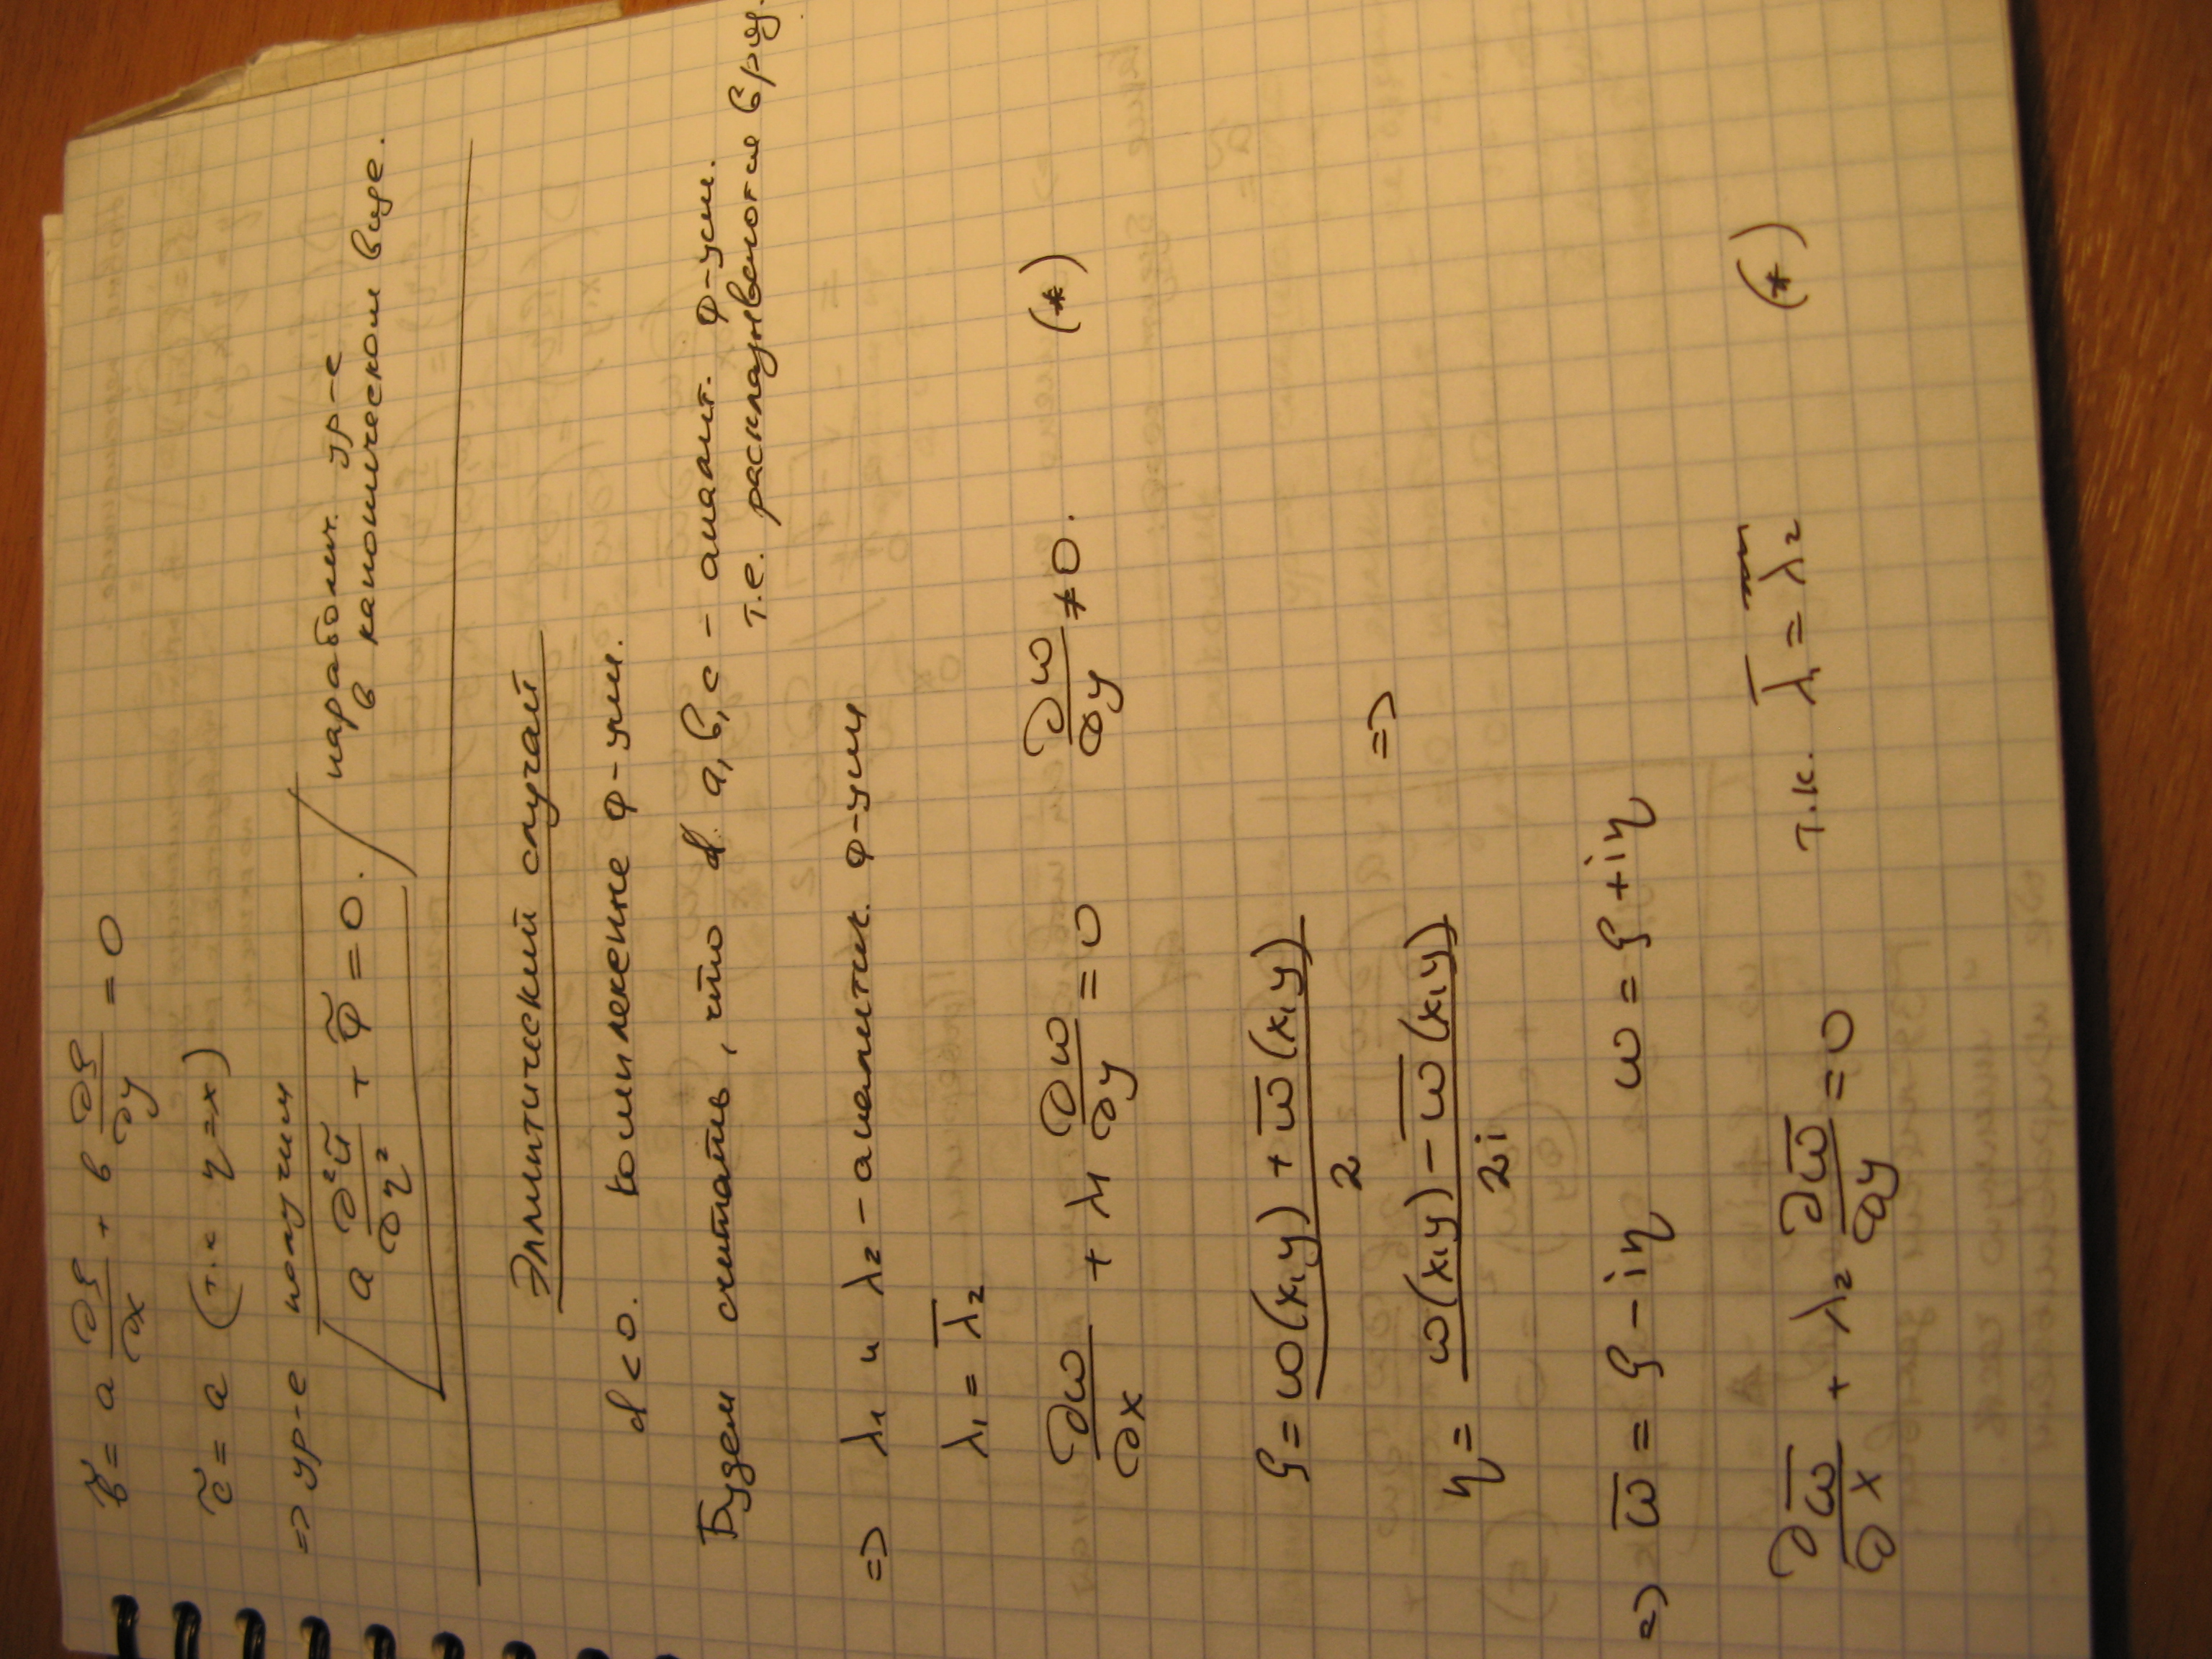 b̃ = a ∂ξ/∂x + b ∂ξ/∂y = 0
c̃ = a (т.к. η=x)
=> ур-е получим
a ∂²ũ/∂η² + φ̃ = 0. параболич. ур-е
в каноническом виде.
Эллиптический случай
d < 0. комплексные ф-ции.
Будем считать, что a, b, c – аналит. ф-ции.
т.е. раскладываются в ряд.
=> λ₁ и λ₂ – аналитич. ф-ции
λ₁ = λ̅₂
∂ω/∂x + λ₁ ∂ω/∂y = 0 ∂ω/∂y ≠ 0. (*)
ξ = (ω(x,y) + ω̅(x,y))/2
η = (ω(x,y) – ω̅(x,y))/2i =>
=> ω̅ = ξ – iη ω = ξ + iη
∂ω̅/∂x + λ₂ ∂ω̅/∂y = 0 т.к. λ̅₁ = λ₂ (*)